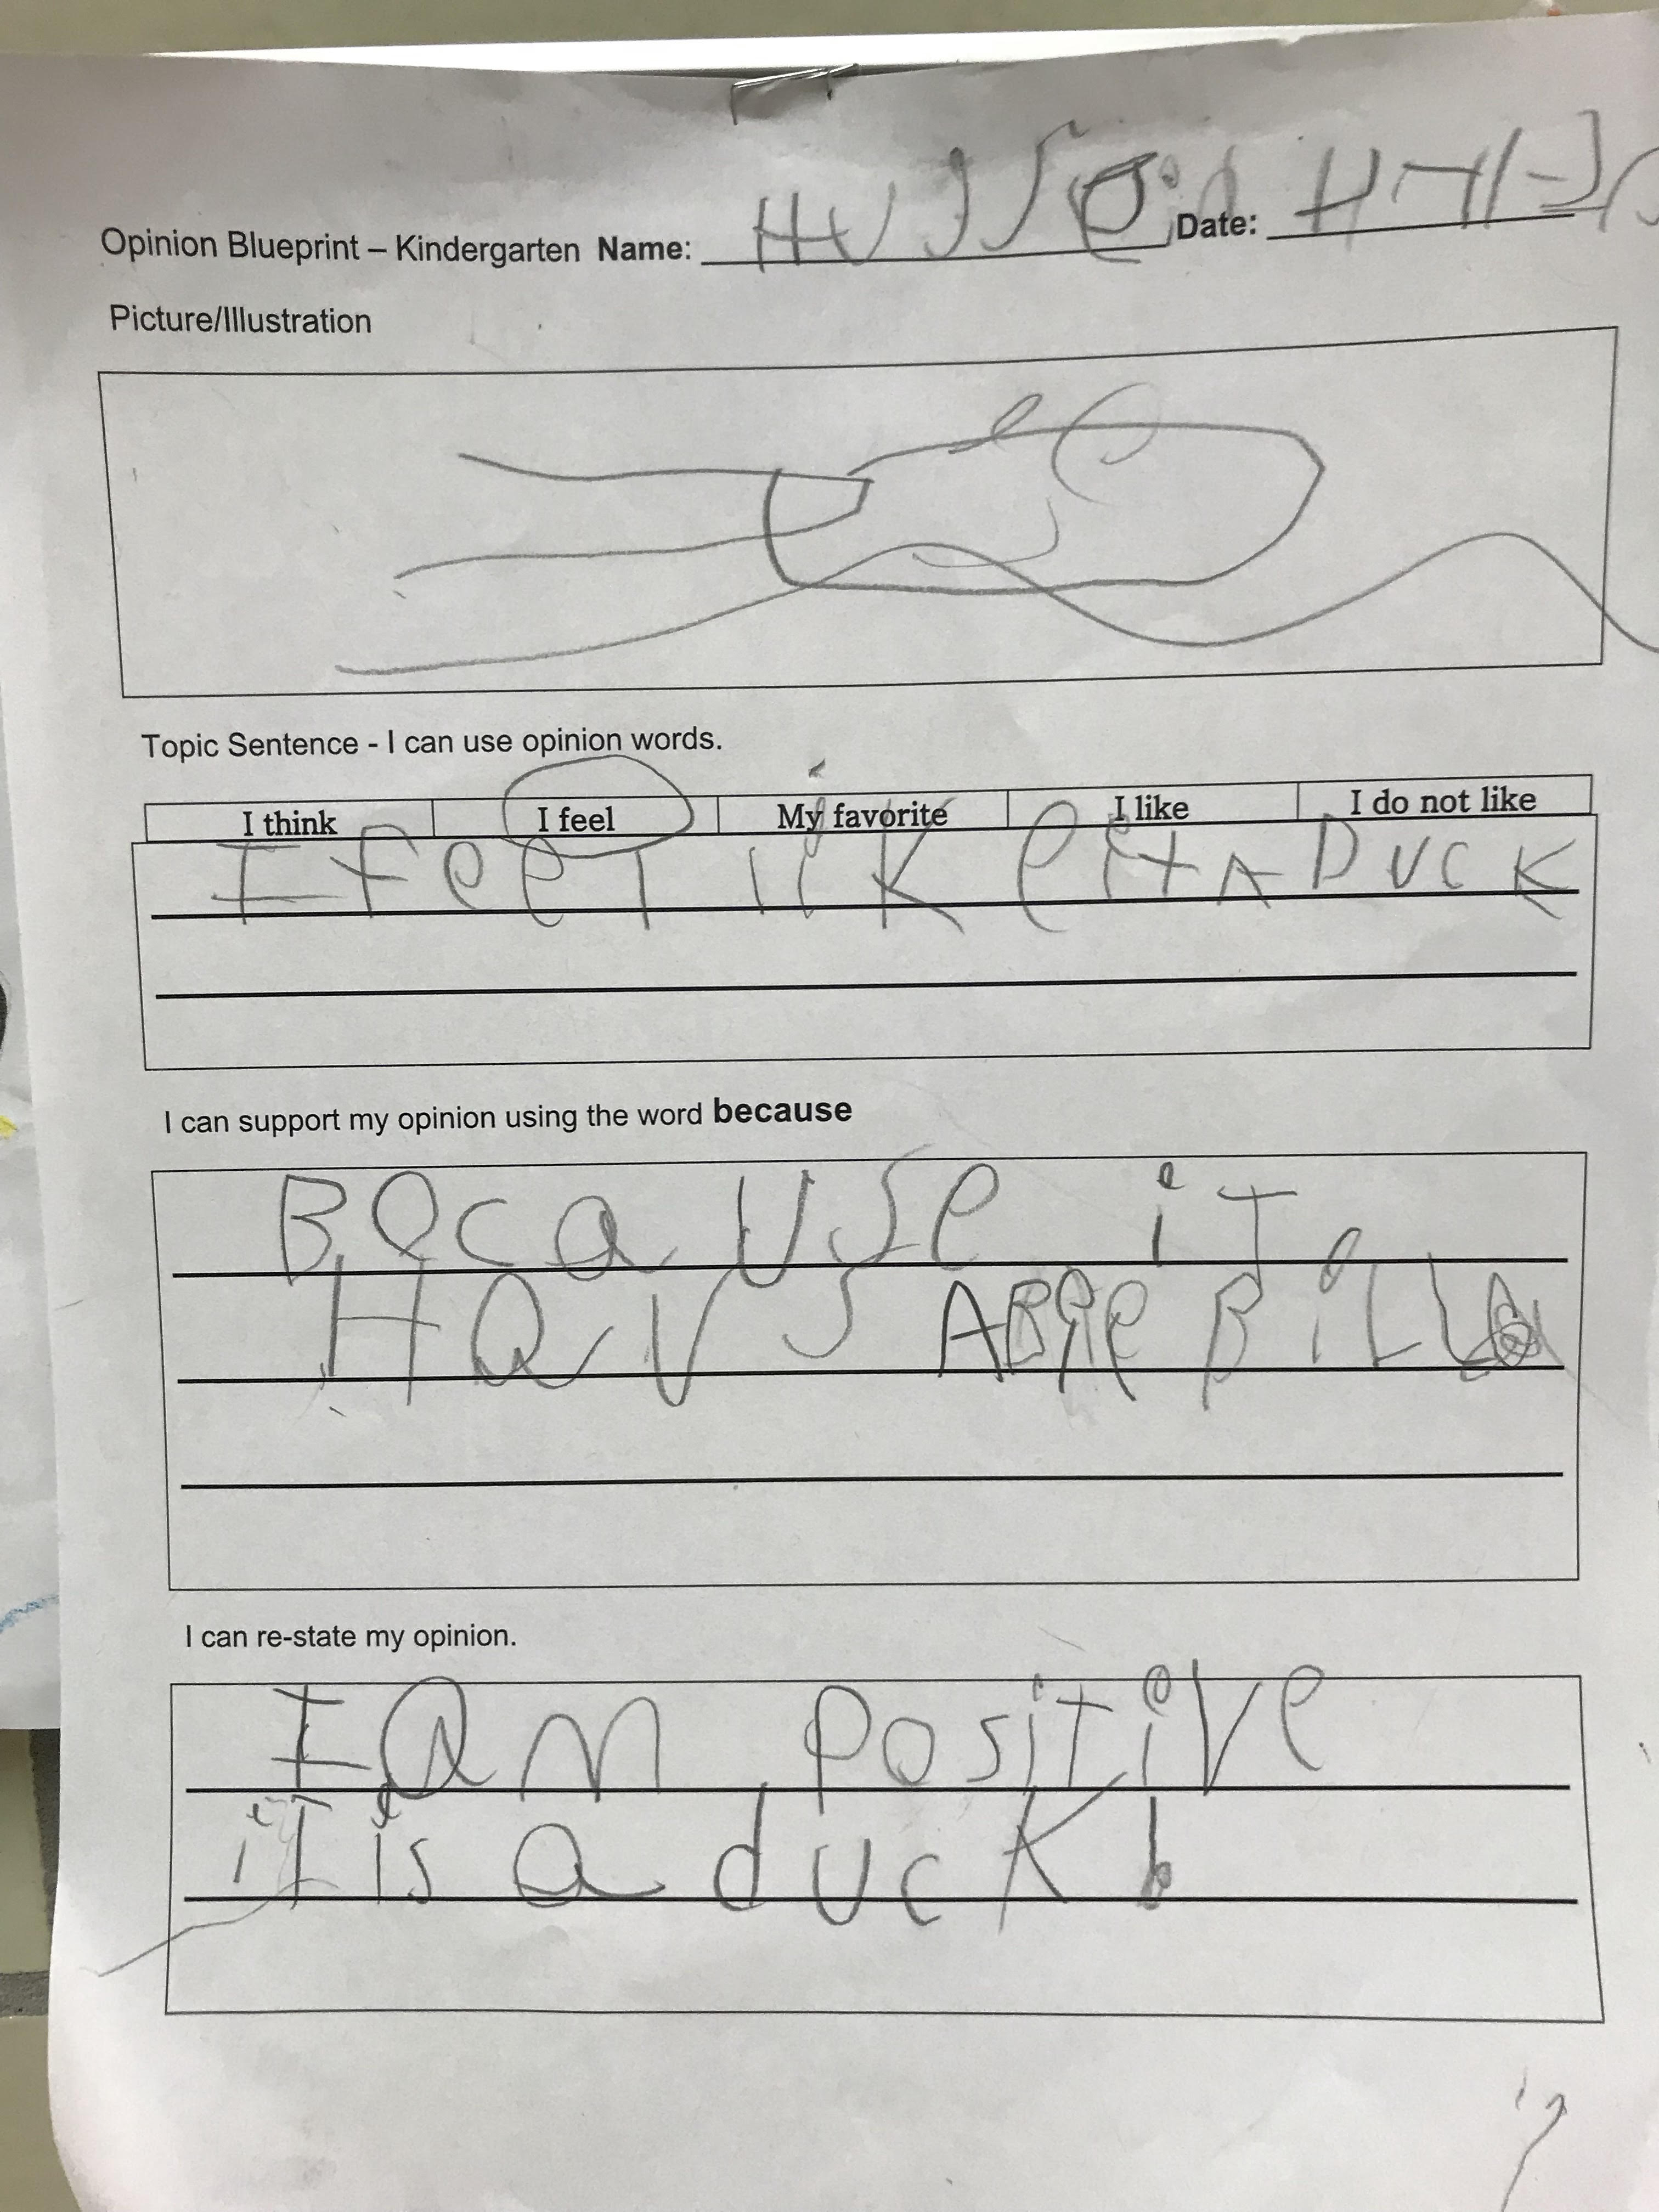 Opinion Blueprint – Kindergarten Name: HUSSein Date:
Picture/Illustration
Topic Sentence - I can use opinion words.
I think I feel My favorite I like I do not like
I feel likE it A DUCK
I can support my opinion using the word because
BecaUSe iT
HaVS A BillL
I can re-state my opinion.
I am PosiTiVe
iT is a duck